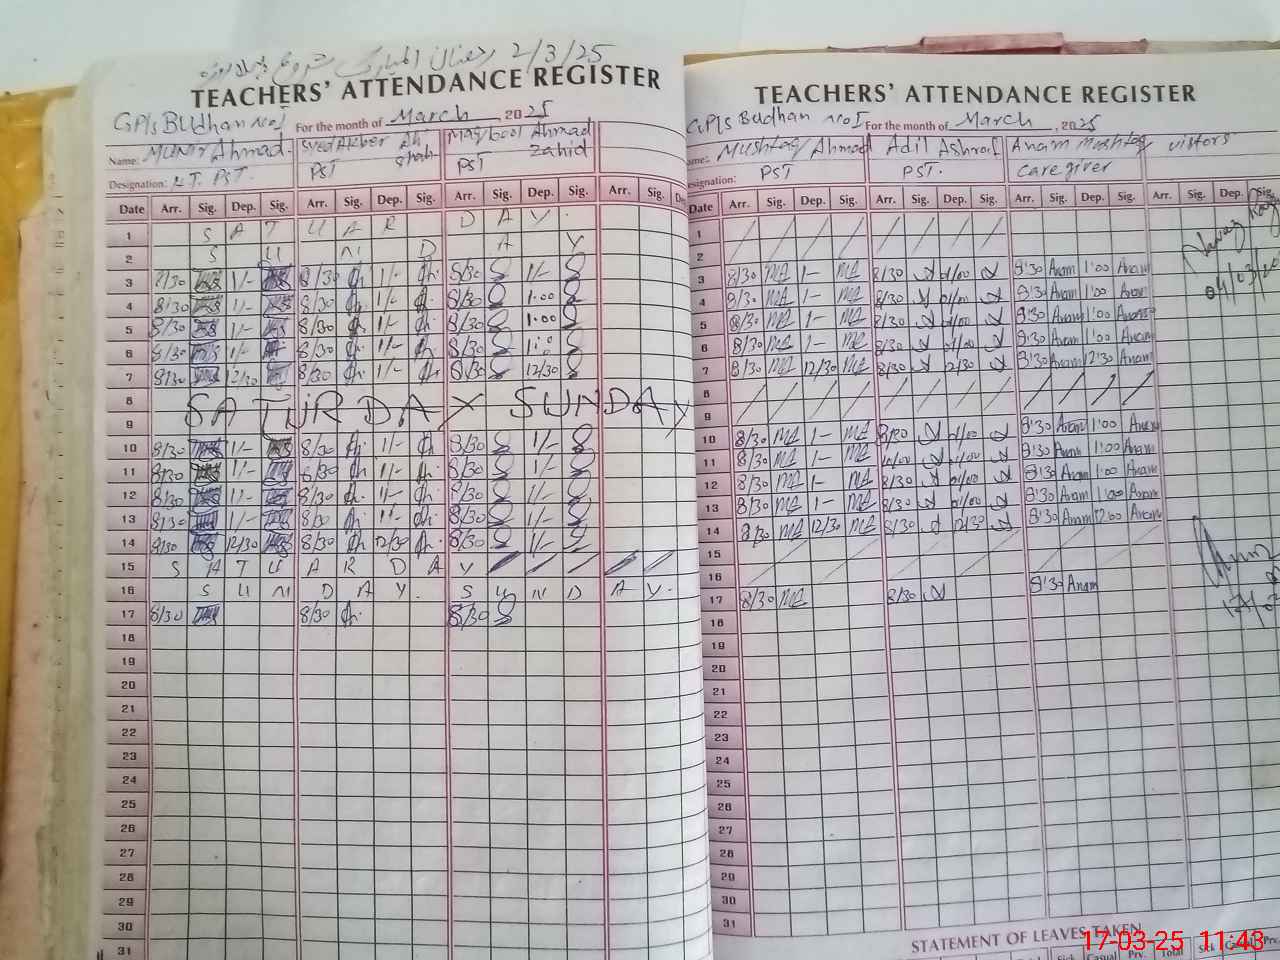 رمضان المبارک شروع 2/3/25
TEACHERS' ATTENDANCE REGISTER
GPS Budhan No I For the month of March, 2025
Name: Munir Ahmad Syed Akber Ali Shah Maqbool Ahmad Zahid
Designation: PST. PST PST
Date Arr. Sig. Dep. Sig. Arr. Sig. Dep. Sig. Arr. Sig. Dep. Sig. Arr. Sig. De
1 S A T U A R D A Y.
2 S U N D A Y
3 8/30 1/- 8/30 1/- 8/30 1/-
4 8/30 1/- 8/30 1/- 8/30 1.00
5 8/30 1/- 8/30 1/- 8/30 1.00
6 8/30 1/- 8/30 1/- 8/30
7 8/30 12/30 8/30 1/- 8/30 12/30
8 SATURDAY SUNDAY
9
10 8/30 1/- 8/30 1/- 8/30 1/-
11 8/30 1/- 8/30 1/- 8/30 1/-
12 8/30 1/- 8/30 1/- 8/30 1/-
13 8/30 1/- 8/30 1/- 8/30 1/-
14 8/30 12/30 8/30 12/30 8/30 1/-
15 S A T U A R D A Y
16 S U N D A Y. S U N D A Y.
17 8/30 8/30 8/30
18
19
20
21
22
23
24
25
26
27
28
29
30
31
TEACHERS' ATTENDANCE REGISTER
GPS Budhan No I For the month of March, 2025
ame: Mushtaq Ahmad Adil Ashraf Anam Mushtaq vistors
esignation: PST PST. Caregiver
Date Arr. Sig. Dep. Sig. Arr. Sig. Dep. Sig. Arr. Sig. Dep. Sig. Arr. Sig. Dep. Sig.
1
2
3 8/30 MA 1- MA 8/30 01/00 8:30 Anam 1:00 Anam
4 8/30 MA 1- MA 8/30 01/00 8:30 Anam 1:00 Anam
5 8/30 MA 1- MA 8/30 01/00 8:30 Anam 1:00 Anam
6 8/30 MA 1- MA 8/30 01/00 8:30 Anam 1:00 Anam
7 8/30 MA 12/30 MA 8/30 12/30 8:30 Anam 12:30 Anam
8
9
10 8/30 MA 1- MA 01/00 8:30 Anam 1:00 Anam
11 8/30 MA 1- MA 01/00 8:30 Anam 1:00 Anam
12 8/30 MA 1- MA 8/30 01/00 8:30 Anam 1:00 Anam
13 8/30 MA 1- MA 8/30 01/00 8:30 Anam 1:00 Anam
14 8/30 MA 12/30 MA 8/30 12/30 8:30 Anam 12:00 Anam
15
16
17 8/30 MA 8/30 8:30 Anam
18
19
20
21
22
23
24
25
26
27
28
29
30
31
STATEMENT OF LEAVES TAKEN
Sick Casual Prv. Total Sick Prv.
17-03-25 11:43